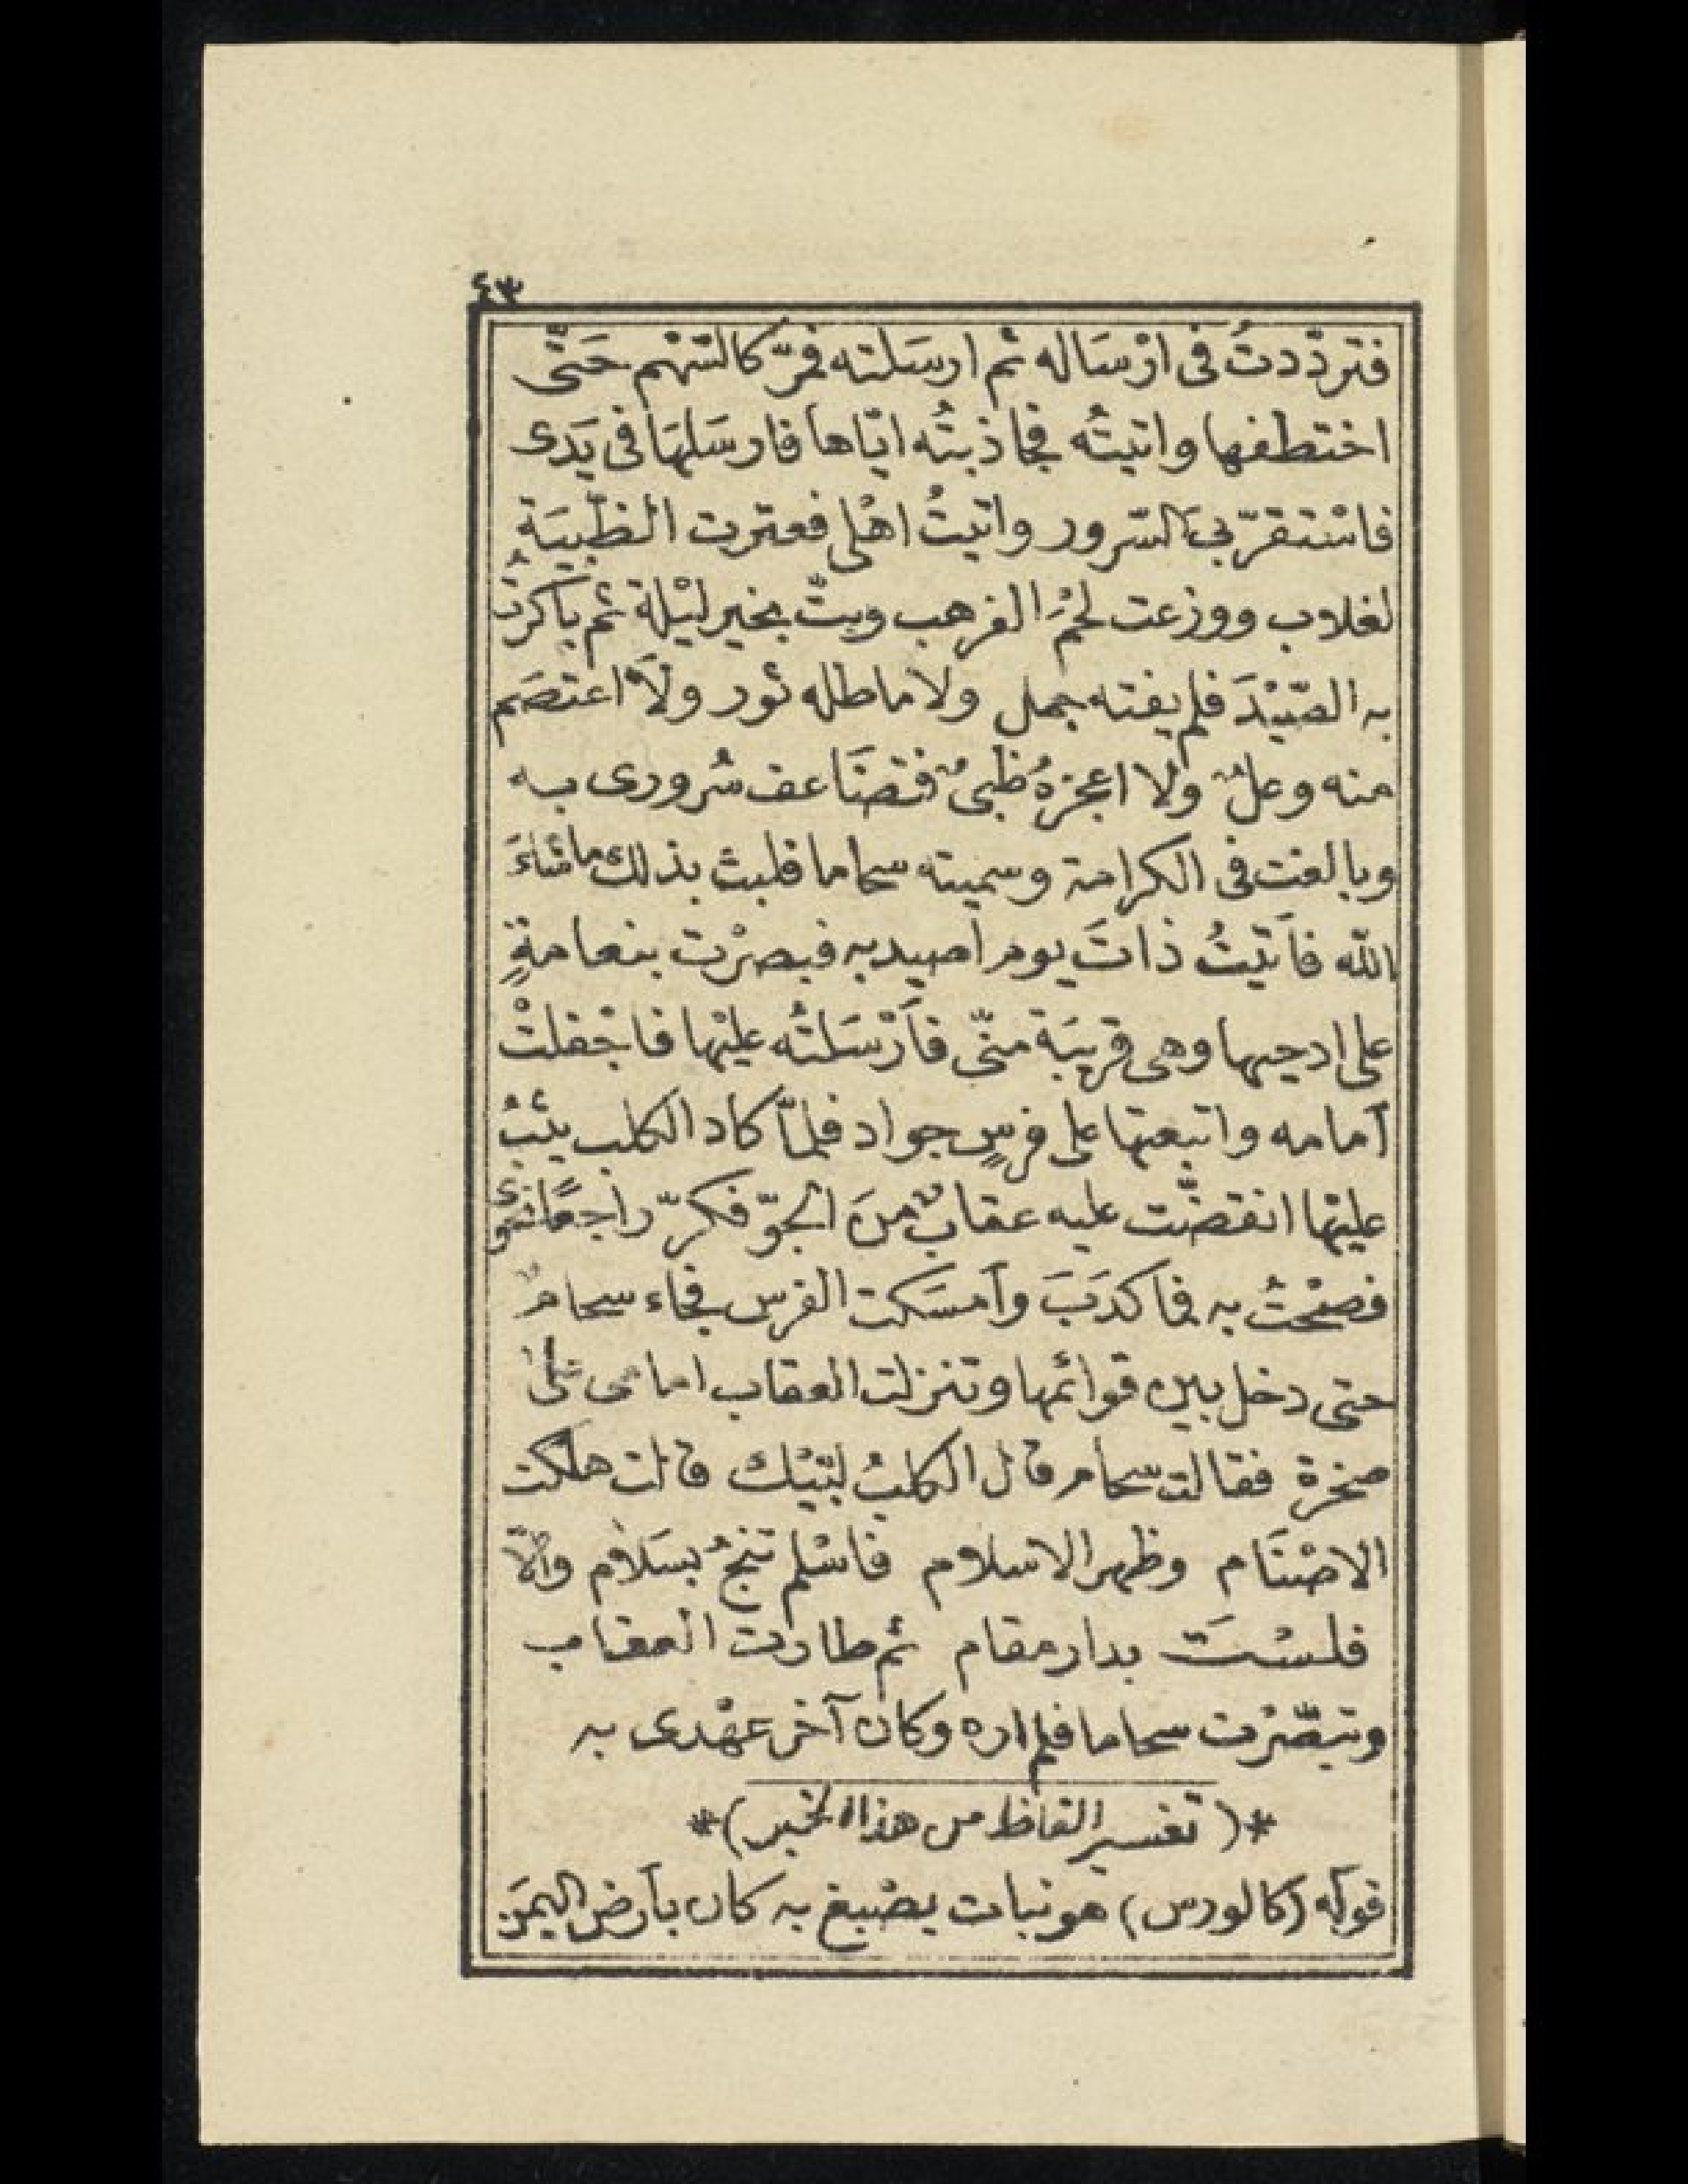 ٤٣
فتردّدتُ فى ارْسَاله ثم ارسَلته فمرّ كالسّهْم حَتّى
اختطفها واتيتُه فجاذبتُه ايّاها فارسَلهَا فى يَدى
فاسْتقرّ بىَ السّرور واتيتُ اهْلى فعترت الظّبيَة
لغلاب ووزعت لحْمَ الفرهب وبتّ بخير ليْلة ثم باكرْتُ
به الصّيْدَ فلم يفته جمل ولا ماطله ثور ولاَ اعتصَم
منه وعلٌ ولا اعجزهُ ظبىٌ فتضَاعف سُرورى به
وبالغت فى الكرامة وسميته سحاما فلبث بذلك ماشاءَ
الله فأتيْتُ ذاتَ يوم أصيد به فبصرْت بنعامةٍ
على ادحيها وهى قريبَة منّى فأرْسَلتُه عليْها فاجْفلتْ
أمامه واتبعتها على فرسٍ جواد فلمّا كاد الكلب يثبُ
عليْها انقضّت عليه عقابٌ منَ الجوّ فكرّ راجعًا نحوى
فصحْتُ به فما كذبَ وأمسَكت الفرس فجاء سحامٌ
حتى دخل بين قوائمها وتنزلت العقاب امامى على
صخرة فقالت سحام قال الكلبُ لبّيْك قالت هلكت
الاصْنَام وظهر الاسلام فاسْلم تنجُ بسَلام والاّ
فلسْتَ بدار مقام ثم طارت العقاب
وتبصّرْت سحاما فلم اره وكان آخر عهْدى به
*(تفسير الفاظ من هذا الخبر)*
قوله (كالورس) هو نبات يصْبغ به كان بأرض اليمَن